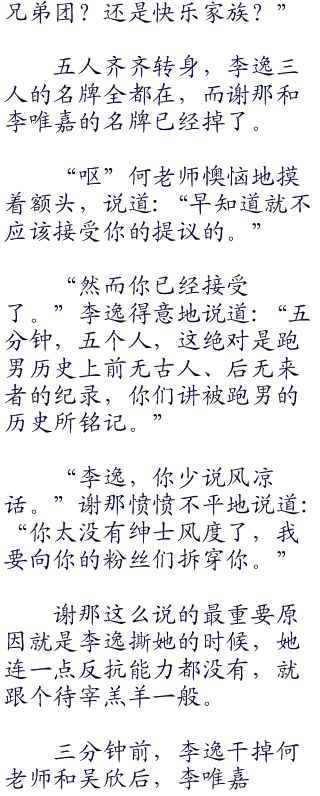 兄弟团？还是快乐家族？”
五人齐齐转身，李逸三
人的名牌全都在，而谢那和
李唯嘉的名牌已经掉了。
“呕”何老师懊恼地摸
着额头，说道：“早知道就不
应该接受你的提议的。”
“然而你已经接受
了。”李逸得意地说道：“五
分钟，五个人，这绝对是跑
男历史上前无古人、后无来
者的纪录，你们讲被跑男的
历史所铭记。”
“李逸，你少说风凉
话。”谢那愤愤不平地说道：
“你太没有绅士风度了，我
要向你的粉丝们拆穿你。”
谢那这么说的最重要原
因就是李逸撕她的时候，她
连一点反抗能力都没有，就
跟个待宰羔羊一般。
三分钟前，李逸干掉何
老师和吴欣后，李唯嘉